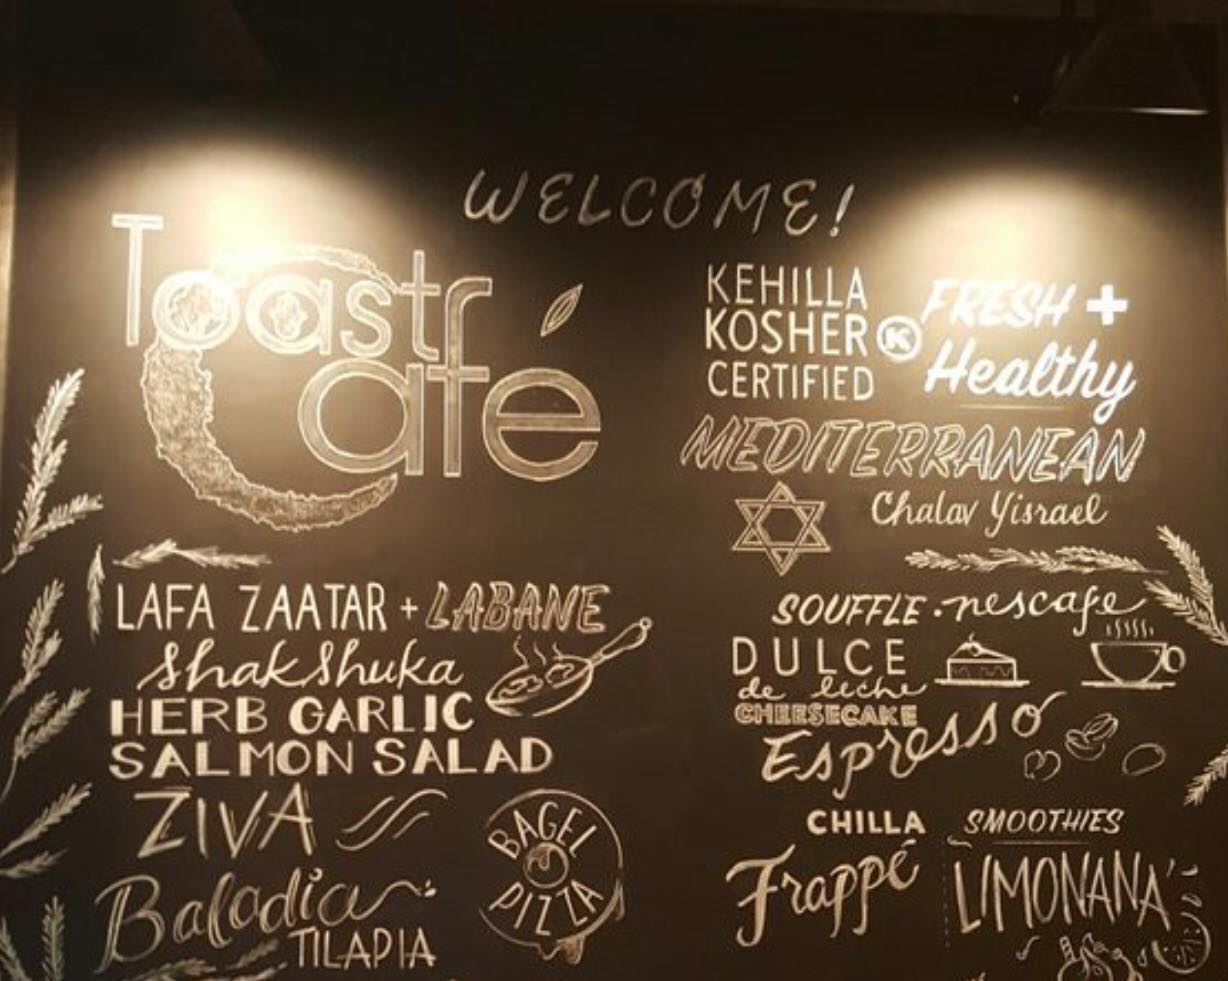 WELCOME!
Toast
Café
KEHILLA
KOSHER K
CERTIFIED
FRESH +
Healthy
MEDITERRANEAN
Chalav Yisrael
LAFA ZAATAR + LABANE
Shakshuka
HERB GARLIC
SALMON SALAD
ZIVA
Baladia
TILAPIA
BAGEL
PIZZA
SOUFFLE · nescafe
DULCE
de leche
CHEESECAKE
Espresso
CHILLA
Frappé
SMOOTHIES
LIMONANA